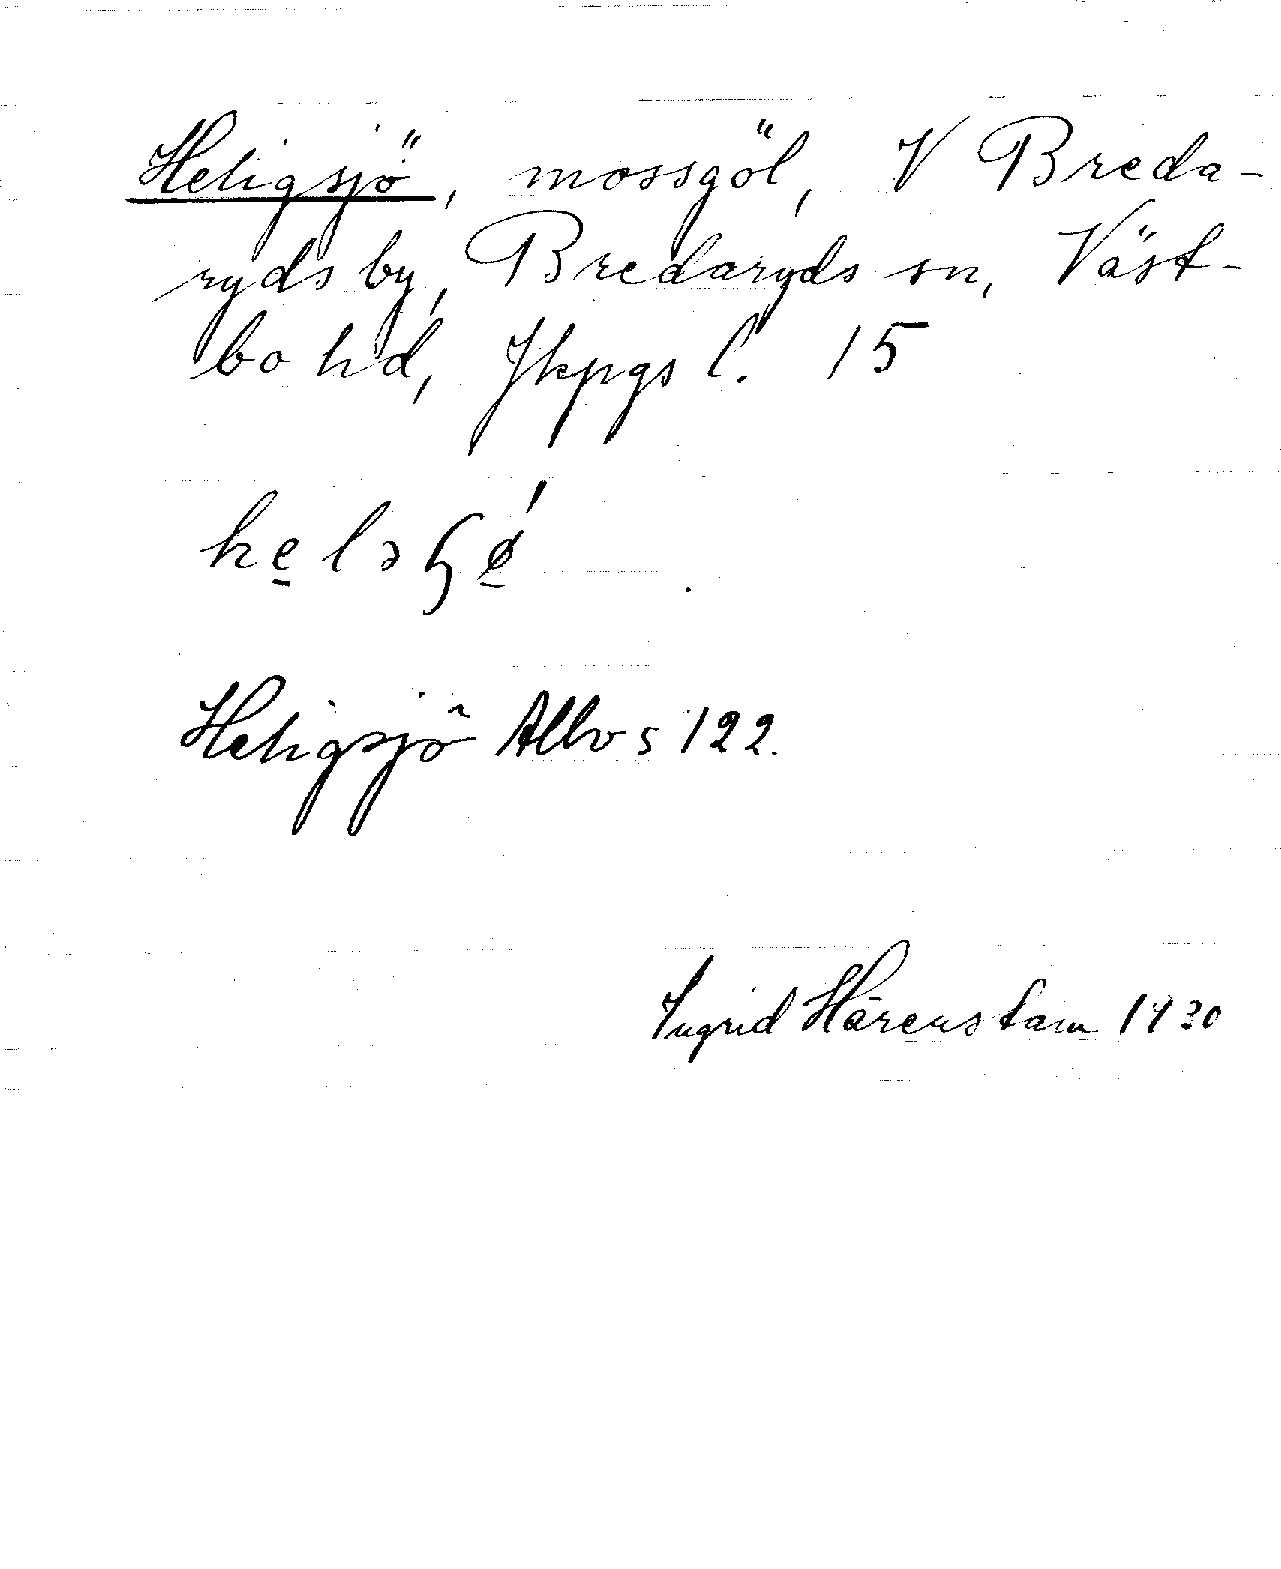 Heligsjö, mossgöl, V Breda-
ryds by, Bredaryds sn, Väst-
bo hd, Jkpgs l. 15
Heligsjö Allvo s 122.
Ingrid Härenstam 1930